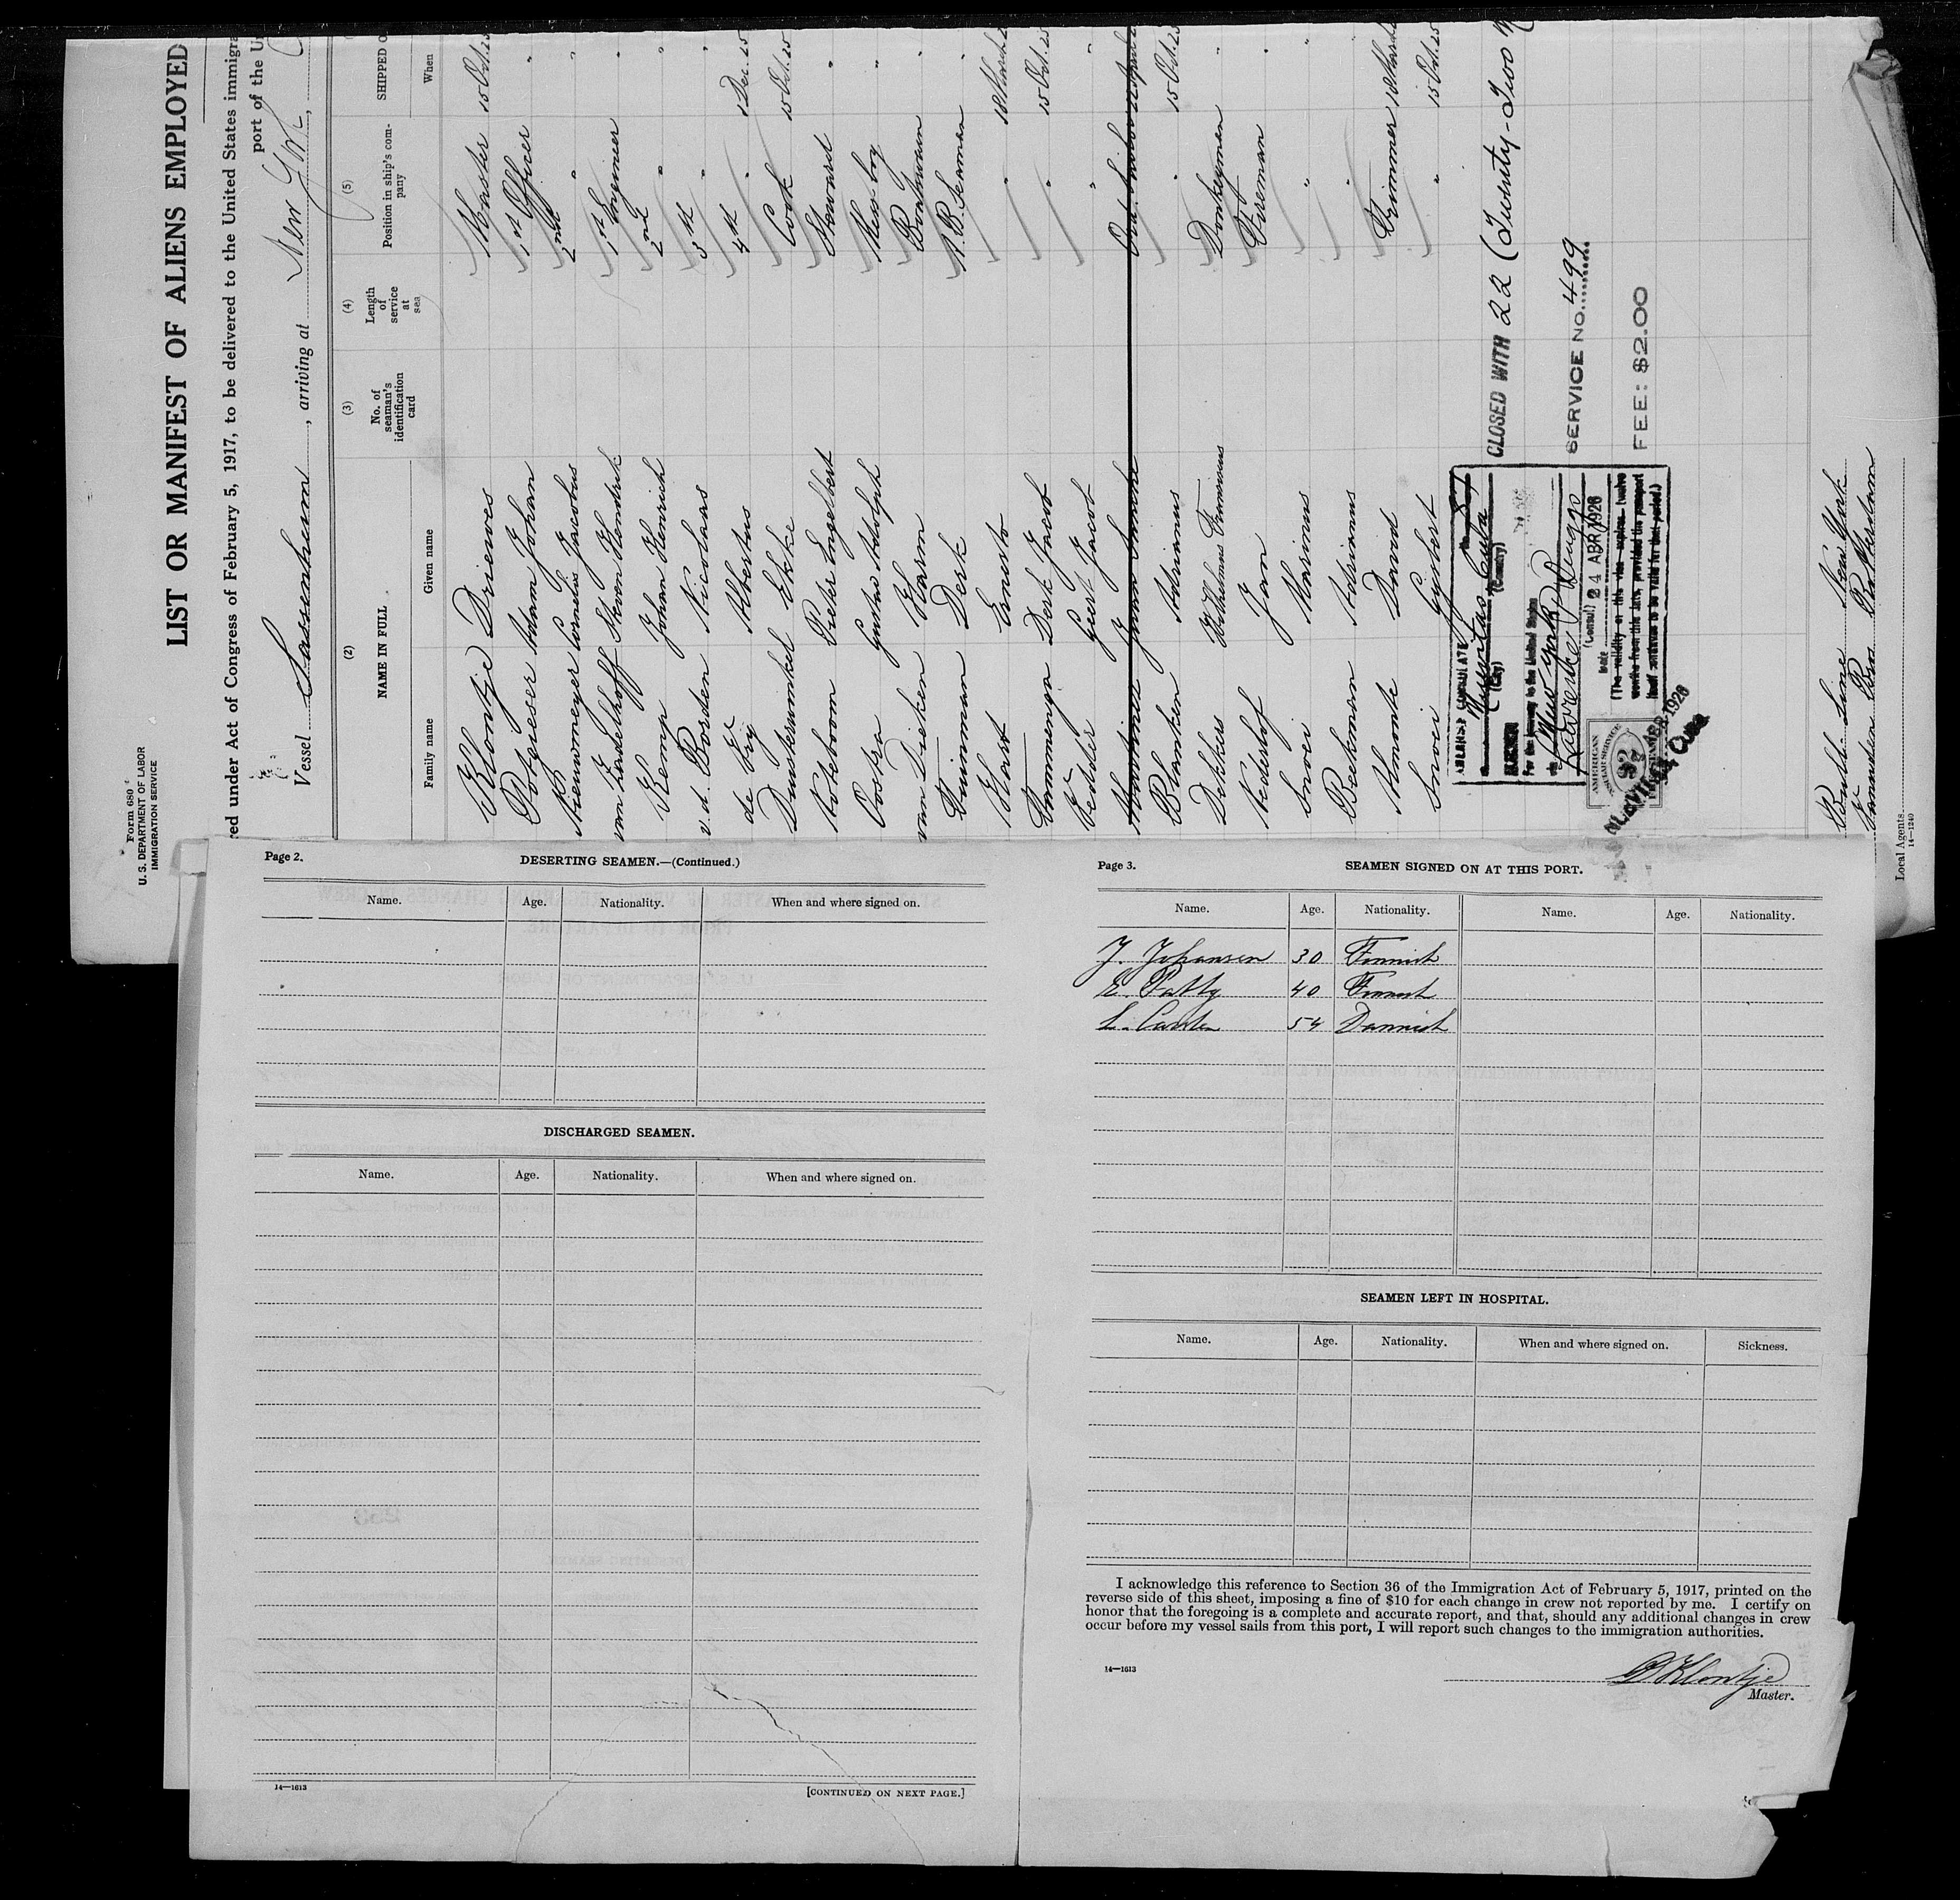 Form 680
U. S. DEPARTMENT OF LABOR
IMMIGRATION SERVICE
LIST OR MANIFEST OF ALIENS EMPLOYED
red under Act of Congress of February 5, 1917, to be delivered to the United States immigra
port of the Un
Vessel Sassenheim, arriving at New York,
(2) (3) (4) (5)
NAME IN FULL No. of seaman's identification card Length of service at sea Position in ship's company SHIPPED O
Family name Given name When
Klontje Driewes Master 15 Oct. 25
Potgieser Adam Johan 1st Officer "
Nieuwmeyer Cornelis Jacobus 2nd " "
Steven Hendrik 1st Engineer "
Kemp Johan Henrich 2nd " "
v.d. Borden Nicolaas 3th " "
de Vry Albertus 4th " 1 Dec. 25
Duisterwinkel Ekke Cook 15 Oct. 25
Noteboom Pieter Engelbert Steward "
Oostra Gustav Adolph Mess boy "
van Dieken Harm Boatswain "
Duinman Derk A.B. Seaman "
Hart Ernesto " 18 March 2
Derk Jacob " 15 Oct. 25
Vedder Geert Jacob " "
Blanken Adrianus " 15 Oct. 25
Dekkers Wilhelmus Donkeyman "
Nederlof Jan Fireman "
Snoei Marinus " "
Beekman Adrianus "
Almonte David Trimmer 18 March
Snoei Gysbert " 15 Oct. 25
CLOSED WITH 22 (Twenty-Two
AMERICAN CONSULATE
Nuevitas Cuba
(City) (Country)
SEEN
For the journey to the United States
via New York
(Consul)
Date 24 ABR 1926
(The validity of this visa expires twelve
months from this date, provided the passport
itself continues to be valid for that period.)
SERVICE NO. 499
FEE: $2.00
AMERICAN
CONSULAR SERVICE
$2
Bull Line New York
Local Agents
14—1240
Page 2.
DESERTING SEAMEN.—(Continued.)
Name. Age. Nationality. When and where signed on.
DISCHARGED SEAMEN.
Name. Age. Nationality. When and where signed on.
14—1613
[CONTINUED ON NEXT PAGE.]
Page 3.
SEAMEN SIGNED ON AT THIS PORT.
Name. Age. Nationality. Name. Age. Nationality.
J. Johansen 30 Finnish
E. Patty 40 Finnish
L. Carsten 54 Dannish
SEAMEN LEFT IN HOSPITAL.
Name. Age. Nationality. When and where signed on. Sickness.
I acknowledge this reference to Section 36 of the Immigration Act of February 5, 1917, printed on the
reverse side of this sheet, imposing a fine of $10 for each change in crew not reported by me. I certify on
honor that the foregoing is a complete and accurate report, and that, should any additional changes in crew
occur before my vessel sails from this port, I will report such changes to the immigration authorities.
14—1613
D Klontje
Master.